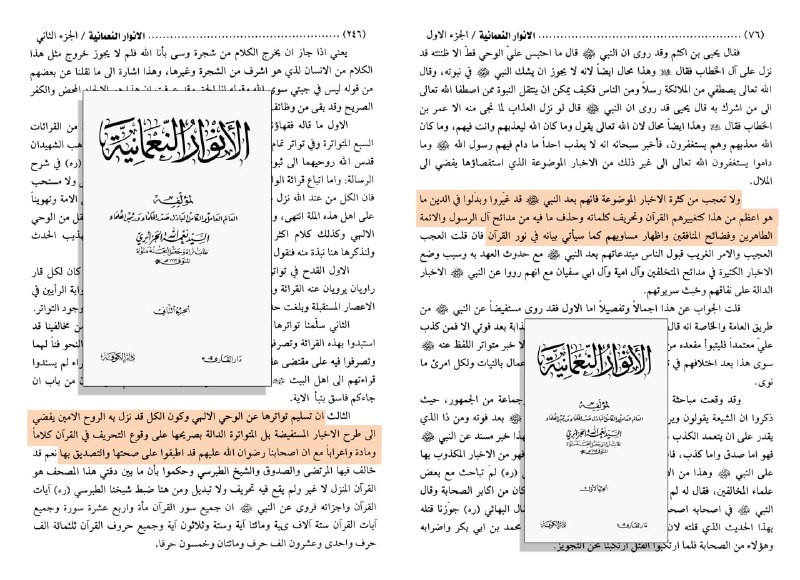 (٧٦) الانوار النعمانية / الجزء الاول
فقال يحيى بن اكثم وقد روى ان النبي ﷺ قال ما احتبس عليّ الوحي قط الا ظننته قد
نزل على آل الخطاب فقال وهذا محال ايضاً لانه لا يجوز ان يشك النبي ﷺ في نبوته، وقال
الله تعالى يصطفي من الملائكة رسلاً ومن الناس فكيف يمكن ان ينتقل النبوة ممن اصطفا الله تعالى
الى من اشرك به قال يحيى قد روى ان النبي ﷺ قال لو نزل العذاب لما نجى منه الا عمر بن
الخطاب فقال وهذا ايضاً محال لان الله تعالى يقول وما كان الله ليعذبهم وانت فيهم، وما كان
الله معذبهم وهم يستغفرون، فأخبر سبحانه انه لا يعذب احداً ما دام فيهم رسول الله ﷺ وما
داموا يستغفرون الله تعالى الى غير ذلك من الاخبار الموضوعة الذي استقصاؤها يفضي الى
الملال.
ولا تعجب من كثرة الاخبار الموضوعة فانهم بعد النبي ﷺ قد غيّروا وبدلوا في الدين ما
هو اعظم من هذا كتغييرهم القرآن وتحريف كلماته وحذف ما فيه من مدائح آل الرسول والائمة
الطاهرين وفضائح المنافقين واظهار مساويهم كما سيأتي بيانه في نور القرآن فان قلت العجب
العجيب والامر الغريب قبول الناس مبتدعاتهم بعد النبي ﷺ مع حدوث العهد به وسبب وضع
الاخبار الكثيرة في مدائح المتخلفين وآل امية وآل ابي سفيان مع انهم رووا عن النبي ﷺ الاخبار
الدالة على نفاقهم وخبث سريرتهم.
قلت الجواب عن هذا اجمالاً وتفصيلاً اما الاول فقد روى مستفيضاً عن النبي ﷺ من
طريق العامة والخاصة انه قال ذابة بعد فوتي الا فمن كذب
عليّ متعمداً فليتبوأ مقعده من خبر متواتر اللفظ عنه ﷺ
سوى هذا بعد اختلافهم في عمال بالنيات ولكل امرئ ما
نوى.
وقد وقعت مباحثة جماعة من الجمهور، حيث
ذكروا ان الشيعة يقولون ﷺ بعد فوته ومن ذا الذي
يقدر على ان يتعمد الكذب هذا خبر مسند عن النبي ﷺ
فهو اما صدق واما كذب، فهو من الاخبار المكذوب بها
على النبي ﷺ وهذا من (ره) لم تباحث مع بعض
علماء المخالفين، فقال له لم كان من اكابر الصحابة وقال
النبي ﷺ في شأنه البهائي (ره) جوّزنا قتله
بهذا الحديث الذي قلته محمد بن ابي بكر واضرابه
وهؤلاء من الصحابة فلما ارتكبوا القتل ارتكبنا نحن التجويز.
الأنوار النعمانية
لمؤلفه
السيد نعمة الله الجزائري
الجزء الأول
دار القارئ
دار الكوفة
(٢٤٦) الانوار النعمانية / الجزء الثاني
يعني اذا جاز ان يخرج الكلام من شجرة وسى بأنا الله فلم لا يجوز خروج مثل هذا
الكلام من الانسان لذي هو اشرف من الشجرة وغيرها، وهذا اشارة الى ما نقلنا عن بعضهم
من قوله ليس في جبتي سوى الله المحض والكفر
الصريح وقد بقى من وظائف
الاول ما قاله فقهاؤنا من القرائات
السبع المتواترة وفي تواتر تمام هب الشهيدان
قدس الله روحيهما الى ثبو (ره) في شرح
الرسالة: واما اتباع قرائة الو لى ولا مستحب
لان الكل من عند الله نزل الامة وتهويناً
على اهل هذه الملة انتهى، و قل من الوحي
الالهي وكذلك كلام اكثر تهذيب الحدث
ولنذكرها هنا نبذة منه فنقول
الاول القدح في تواتر كان لكل قار
راويان يرويان عنه القرائة رواية الرأيين في
الاعصار المستقبلة وبلغت حد وجود التواتر.
الثاني سلّمنا تواترها من مخالفينا قد
استبدوا بهذه القرائة وتصرفوا النحو فناً لهما
وتصرفوا فيه على مقتضى عقو راء لم يستندوا
قراءتهم الى اهل البيت من باب ان
جاءكم فاسق بنبأ الاية.
الثالث ان تسليم تواترها عن الوحي الالهي وكون الكل قد نزل به الروح الامين يفضي
الى طرح الاخبار المستفيضة بل المتواترة الدالة بصريحها على وقوع التحريف في القرآن كلاماً
ومادة واعراباً مع ان اصحابنا رضوان الله عليهم قد اطبقوا على صحتها والتصديق بها نعم قد
خالف فيها المرتضى والصدوق والشيخ الطبرسي وحكموا بأن ما بين دفتي هذا المصحف هو
القرآن المنزل لا غير ولم يقع فيه تحريف ولا تبديل ومن هنا ضبط شيخنا الطبرسي (ره) آيات
القرآن واجزائه فروى عن النبي ﷺ ان جميع سور القرآن مأة واربع عشرة سورة وجميع
آيات القرآن ستة آلاف آية ومائتا آية وستة وثلاثون آية وجميع حروف القرآن ثلثمائة الف
حرف واحدى وعشرون الف حرف ومائتان وخمسون حرفا.
الأنوار النعمانية
لمؤلفه
السيد نعمة الله الجزائري
الجزء الثاني
دار القارئ
دار الكوفة